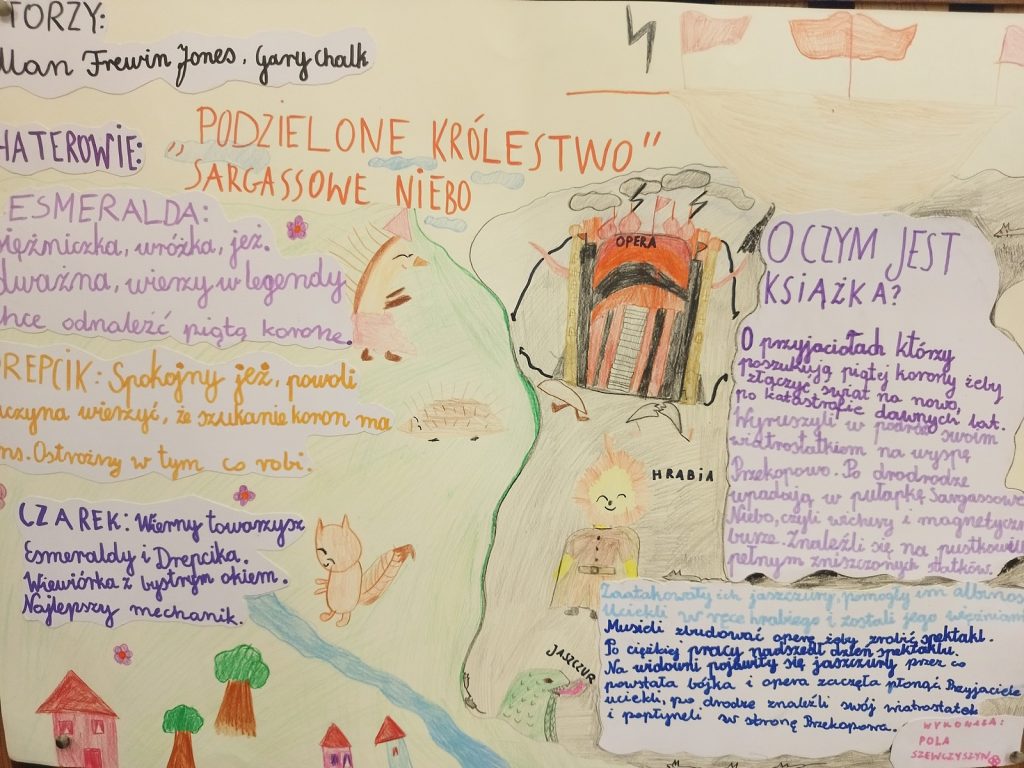 TORZY:
Alan Frewin Jones, Gary Chalk
HATEROWIE:
„PODZIELONE KRÓLESTWO"
SARGASSOWE NIEBO
ESMERALDA:
siężniczka, wróżka, jeż.
dważna, wierzy w legendy
hce odnaleźć piątą koronę.
DREPCIK: Spokojny jeż, powoli
aczyna wierzyć, że szukanie koron ma
ens. Ostrożny w tym co robi.
CZAREK: Wierny towarzysz
Esmeraldy i Drepcika.
Wiewiórka z bystrym okiem.
Najlepszy mechanik.
OPERA
HRABIA
JASZCZUR
O CZYM JEST
KSIĄŻKA?
O przyjaciołach którzy
poszukują piątej korony żeby
złączyć świat na nowo,
po katastrofie dawnych lat.
Wyruszyli w podróż swoim
wiatrostatkiem na wyspę
Przekopowo. Po drodrodze
wpadają w pułapkę Sargassowe
Niebo, czyli wichury i magnetyczn
burze. Znaleźli się na pustkowiu
pełnym zniszczonych statków.
Zaatakowały ich jaszczury, pomogły im albinos
Uciekli w ręce hrabiego i zostali jego więźniam
Musieli zbudować operę żeby zrobić spektakl.
Po ciężkiej pracy nadszedł dzień spektaklu.
Na widowni pojawiły się jaszczury przez co
powstała bójka i opera zaczęła płonąć. Przyjaciele
uciekli, po drodze znaleźli swój wiatrostatek
i popłyneli w stronę Przekopowa.
WYKONAŁA:
POLA
SZEWCZYSZYN